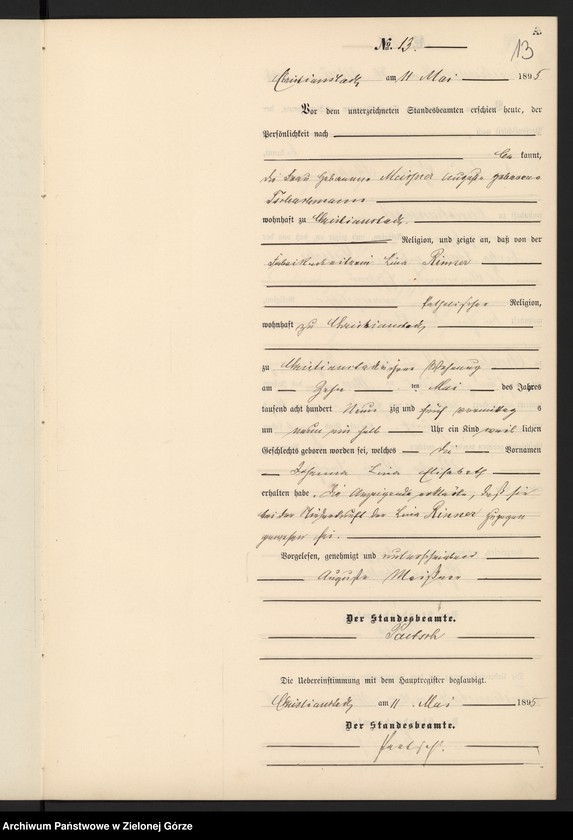 A.
13
№ 13.
Christianstadt, am 11 Mai 1895
Vor dem unterzeichneten Standesbeamten erschien heute, der
Persönlichkeit nach
be kannt,
die Frau Hebamme Meissner Auguste geborene
wohnhaft zu Christianstadt,
Religion, und zeigte an, daß von der
Fabrikarbeiterin Lina Rinner
katholischer Religion,
wohnhaft zu Christianstadt,
zu Christianstadt in ihrer Wohnung
am Zehn ten Mai des Jahres
tausend acht hundert Neun zig und fünf vormittags
um neun ein halb Uhr ein Kind weib lichen
Geschlechts geboren worden sei, welches die Vornamen
Johanna Lina Elisabeth
erhalten habe. Die Anzeigende erklärte, daß sie
bei der Niederkunft der Lina Rinner zugegen
gewesen sei.
Vorgelesen, genehmigt und unterschrieben
Auguste Meissner
Der Standesbeamte.
Die Uebereinstimmung mit dem Hauptregister beglaubigt.
Christianstadt, am 11. Mai 1895
Der Standesbeamte.
Archiwum Państwowe w Zielonej Górze